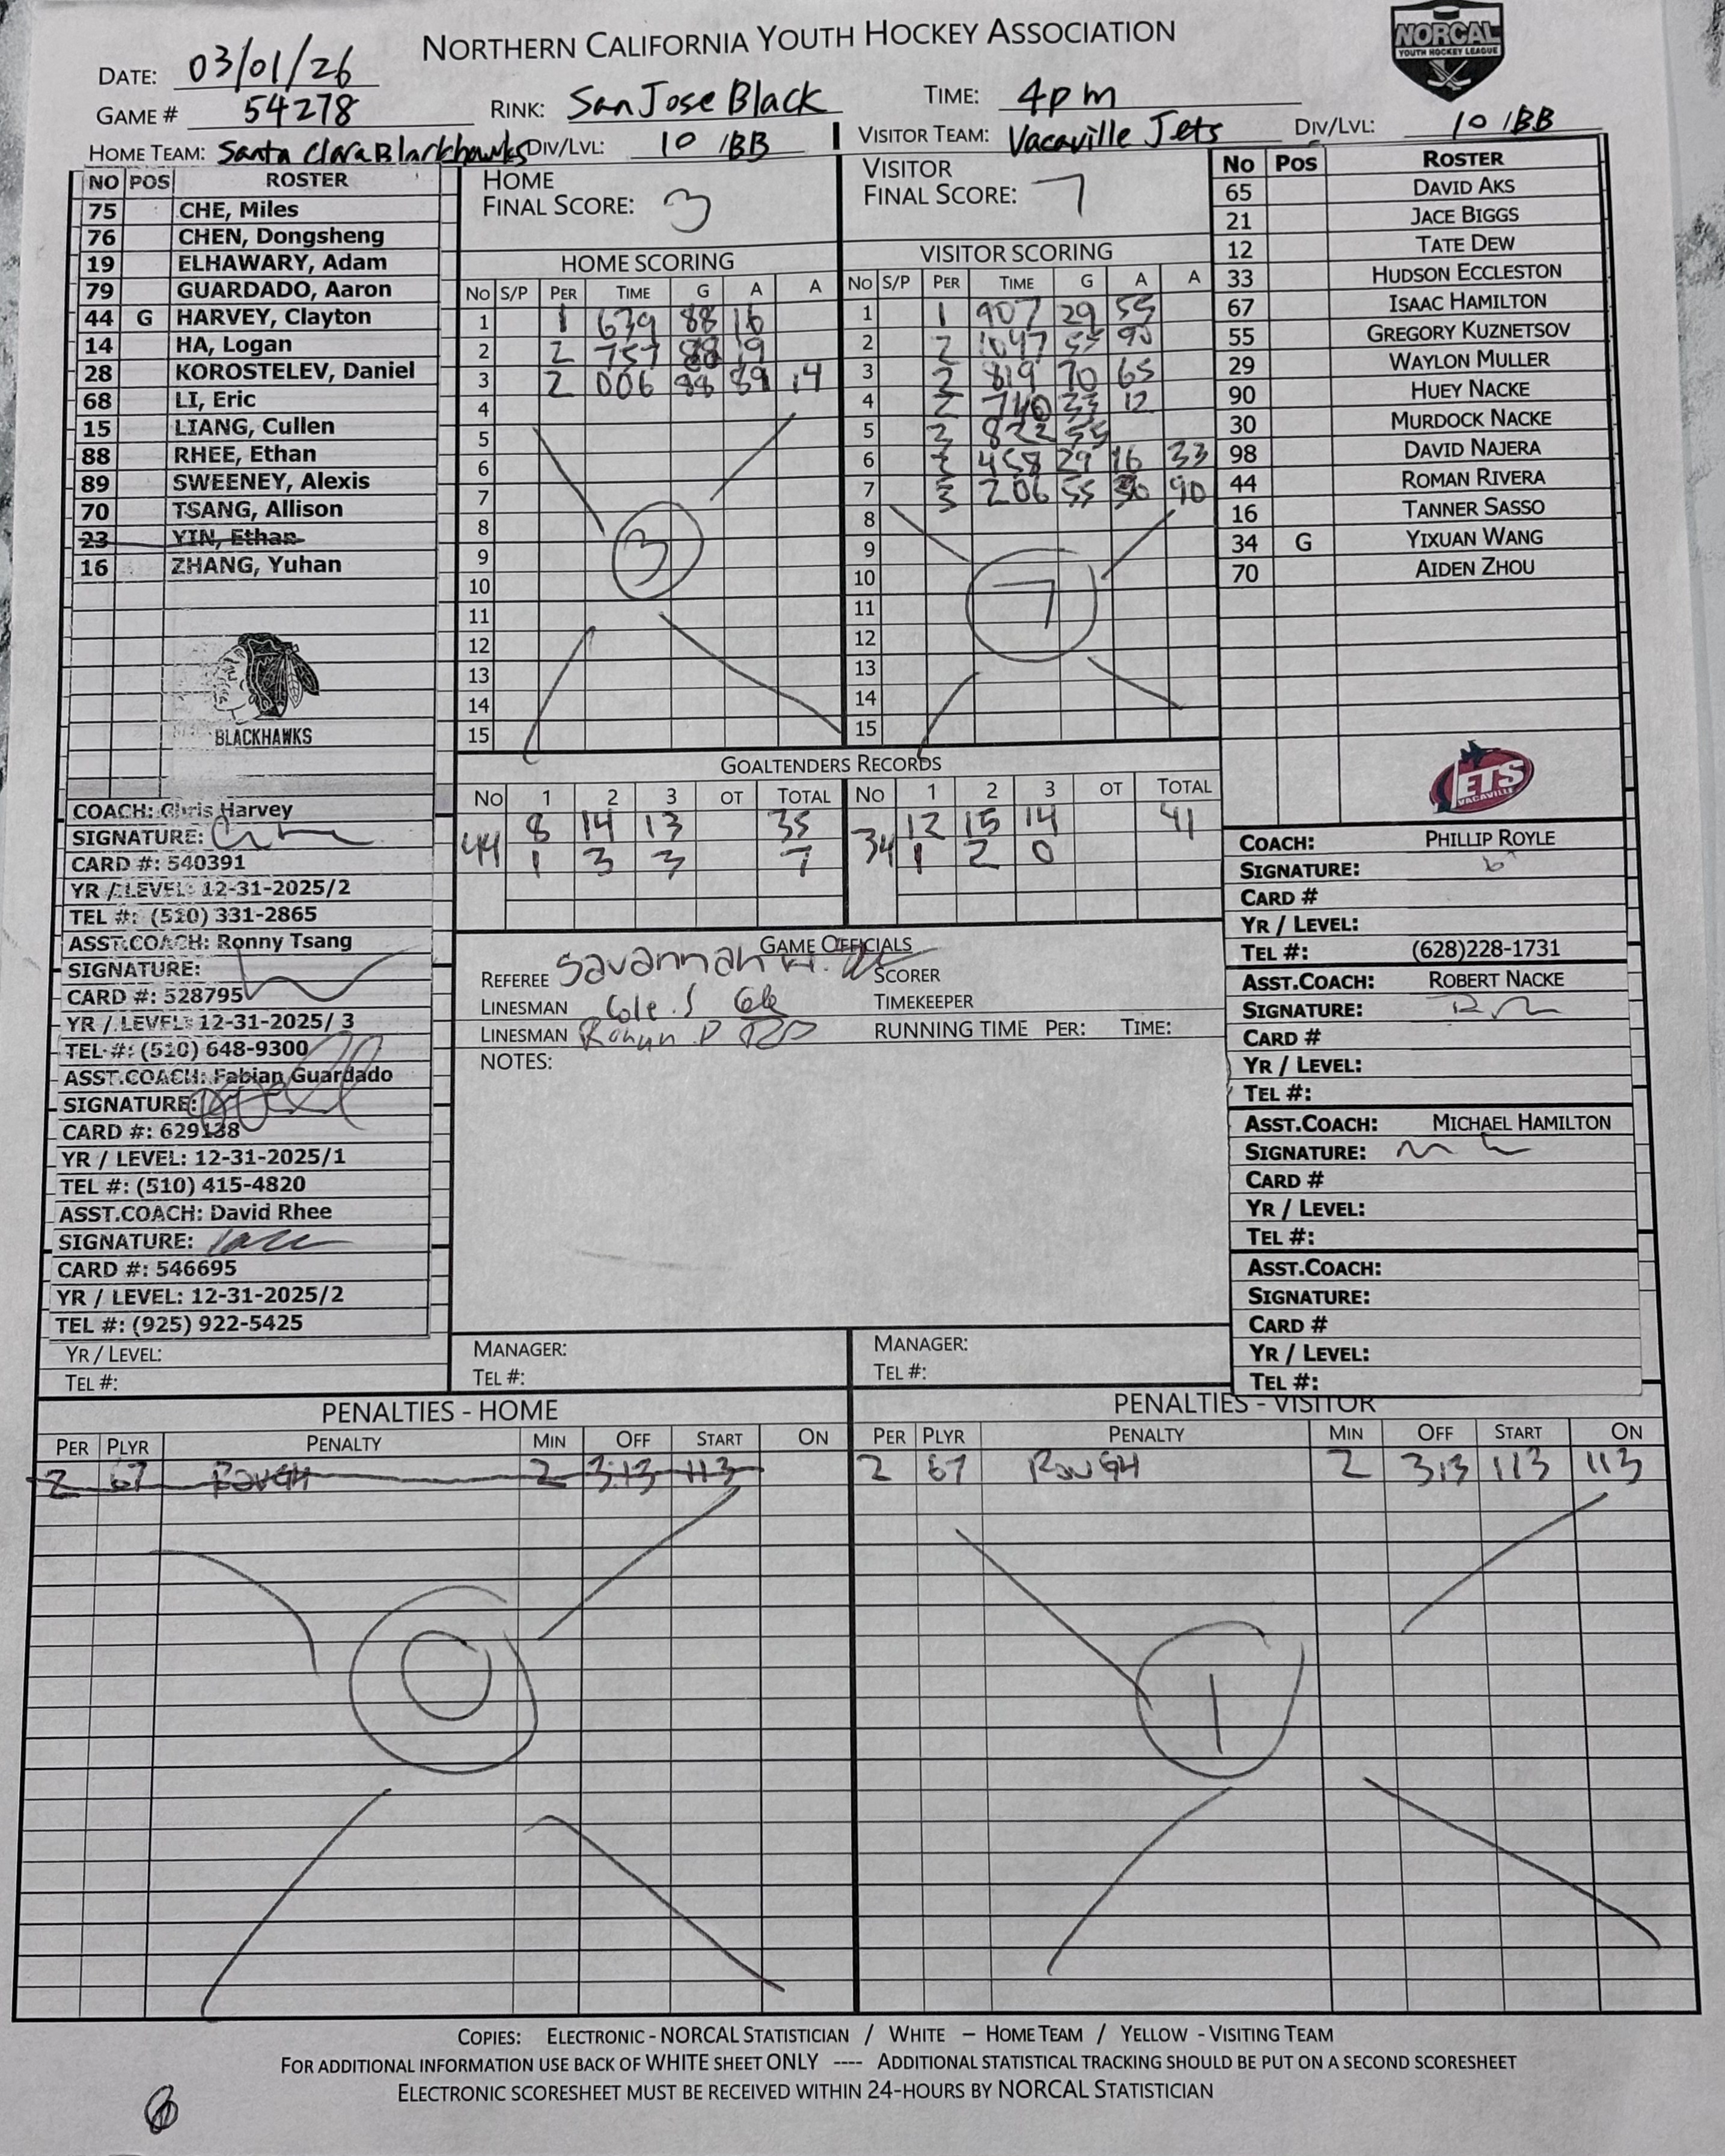 NORTHERN CALIFORNIA YOUTH HOCKEY ASSOCIATION
NORCAL
YOUTH HOCKEY LEAGUE
DATE: 03/01/26
GAME # 54278 RINK: San Jose Black TIME: 4pm
HOME TEAM: Santa Clara Blackhawks DIV/LVL: 10 /BB VISITOR TEAM: Vacaville Jets DIV/LVL: 10 /BB
NO POS ROSTER
75 CHE, Miles
76 CHEN, Dongsheng
19 ELHAWARY, Adam
79 GUARDADO, Aaron
44 G HARVEY, Clayton
14 HA, Logan
28 KOROSTELEV, Daniel
68 LI, Eric
15 LIANG, Cullen
88 RHEE, Ethan
89 SWEENEY, Alexis
70 TSANG, Allison
23 YIN, Ethan
16 ZHANG, Yuhan
BLACKHAWKS
COACH: Chris Harvey
SIGNATURE:
CARD #: 540391
YR / LEVEL: 12-31-2025/2
TEL #: (510) 331-2865
ASST.COACH: Ronny Tsang
SIGNATURE:
CARD #: 528795
YR / LEVEL: 12-31-2025/ 3
TEL #: (510) 648-9300
ASST.COACH: Fabian Guardado
SIGNATURE:
CARD #: 629138
YR / LEVEL: 12-31-2025/1
TEL #: (510) 415-4820
ASST.COACH: David Rhee
SIGNATURE:
CARD #: 546695
YR / LEVEL: 12-31-2025/2
TEL #: (925) 922-5425
YR / LEVEL:
TEL #:
HOME
FINAL SCORE: 3
HOME SCORING
NO S/P PER TIME G A A
1 1 639 88 16
2 2 757 88 19
3 2 006 88 89 14
4
5
6
7
8
9
10
11
12
13
14
15
3
VISITOR
FINAL SCORE: 7
VISITOR SCORING
NO S/P PER TIME G A A
1 1 907 29 55
2 2 1047 55 90
3 2 819 70 65
4 2 740 33 12
5 3 822 55
6 3 458 29 16 33
7 3 206 55 30 90
8
9
10
11
12
13
14
15
7
GOALTENDERS RECORDS
NO 1 2 3 OT TOTAL NO 1 2 3 OT TOTAL
44 8 14 13 35 34 12 15 14 41
1 3 3 7 1 2 0
GAME OFFICIALS
REFEREE Savannah H. SCORER
LINESMAN Cole.S TIMEKEEPER
LINESMAN Ronan D RUNNING TIME PER: TIME:
NOTES:
MANAGER: MANAGER:
TEL #: TEL #:
NO POS ROSTER
65 DAVID AKS
21 JACE BIGGS
12 TATE DEW
33 HUDSON ECCLESTON
67 ISAAC HAMILTON
55 GREGORY KUZNETSOV
29 WAYLON MULLER
90 HUEY NACKE
30 MURDOCK NACKE
98 DAVID NAJERA
44 ROMAN RIVERA
16 TANNER SASSO
34 G YIXUAN WANG
70 AIDEN ZHOU
JETS
VACAVILLE
COACH: PHILLIP ROYLE
SIGNATURE:
CARD #
YR / LEVEL:
TEL #: (628)228-1731
ASST.COACH: ROBERT NACKE
SIGNATURE:
CARD #
YR / LEVEL:
TEL #:
ASST.COACH: MICHAEL HAMILTON
SIGNATURE:
CARD #
YR / LEVEL:
TEL #:
ASST.COACH:
SIGNATURE:
CARD #
YR / LEVEL:
TEL #:
PENALTIES - HOME PENALTIES - VISITOR
PER PLYR PENALTY MIN OFF START ON PER PLYR PENALTY MIN OFF START ON
2 67 ROUGH 2 3:13 113 2 67 ROUGH 2 313 113 113
0 1
COPIES: ELECTRONIC - NORCAL STATISTICIAN / WHITE – HOME TEAM / YELLOW - VISITING TEAM
FOR ADDITIONAL INFORMATION USE BACK OF WHITE SHEET ONLY ---- ADDITIONAL STATISTICAL TRACKING SHOULD BE PUT ON A SECOND SCORESHEET
ELECTRONIC SCORESHEET MUST BE RECEIVED WITHIN 24-HOURS BY NORCAL STATISTICIAN